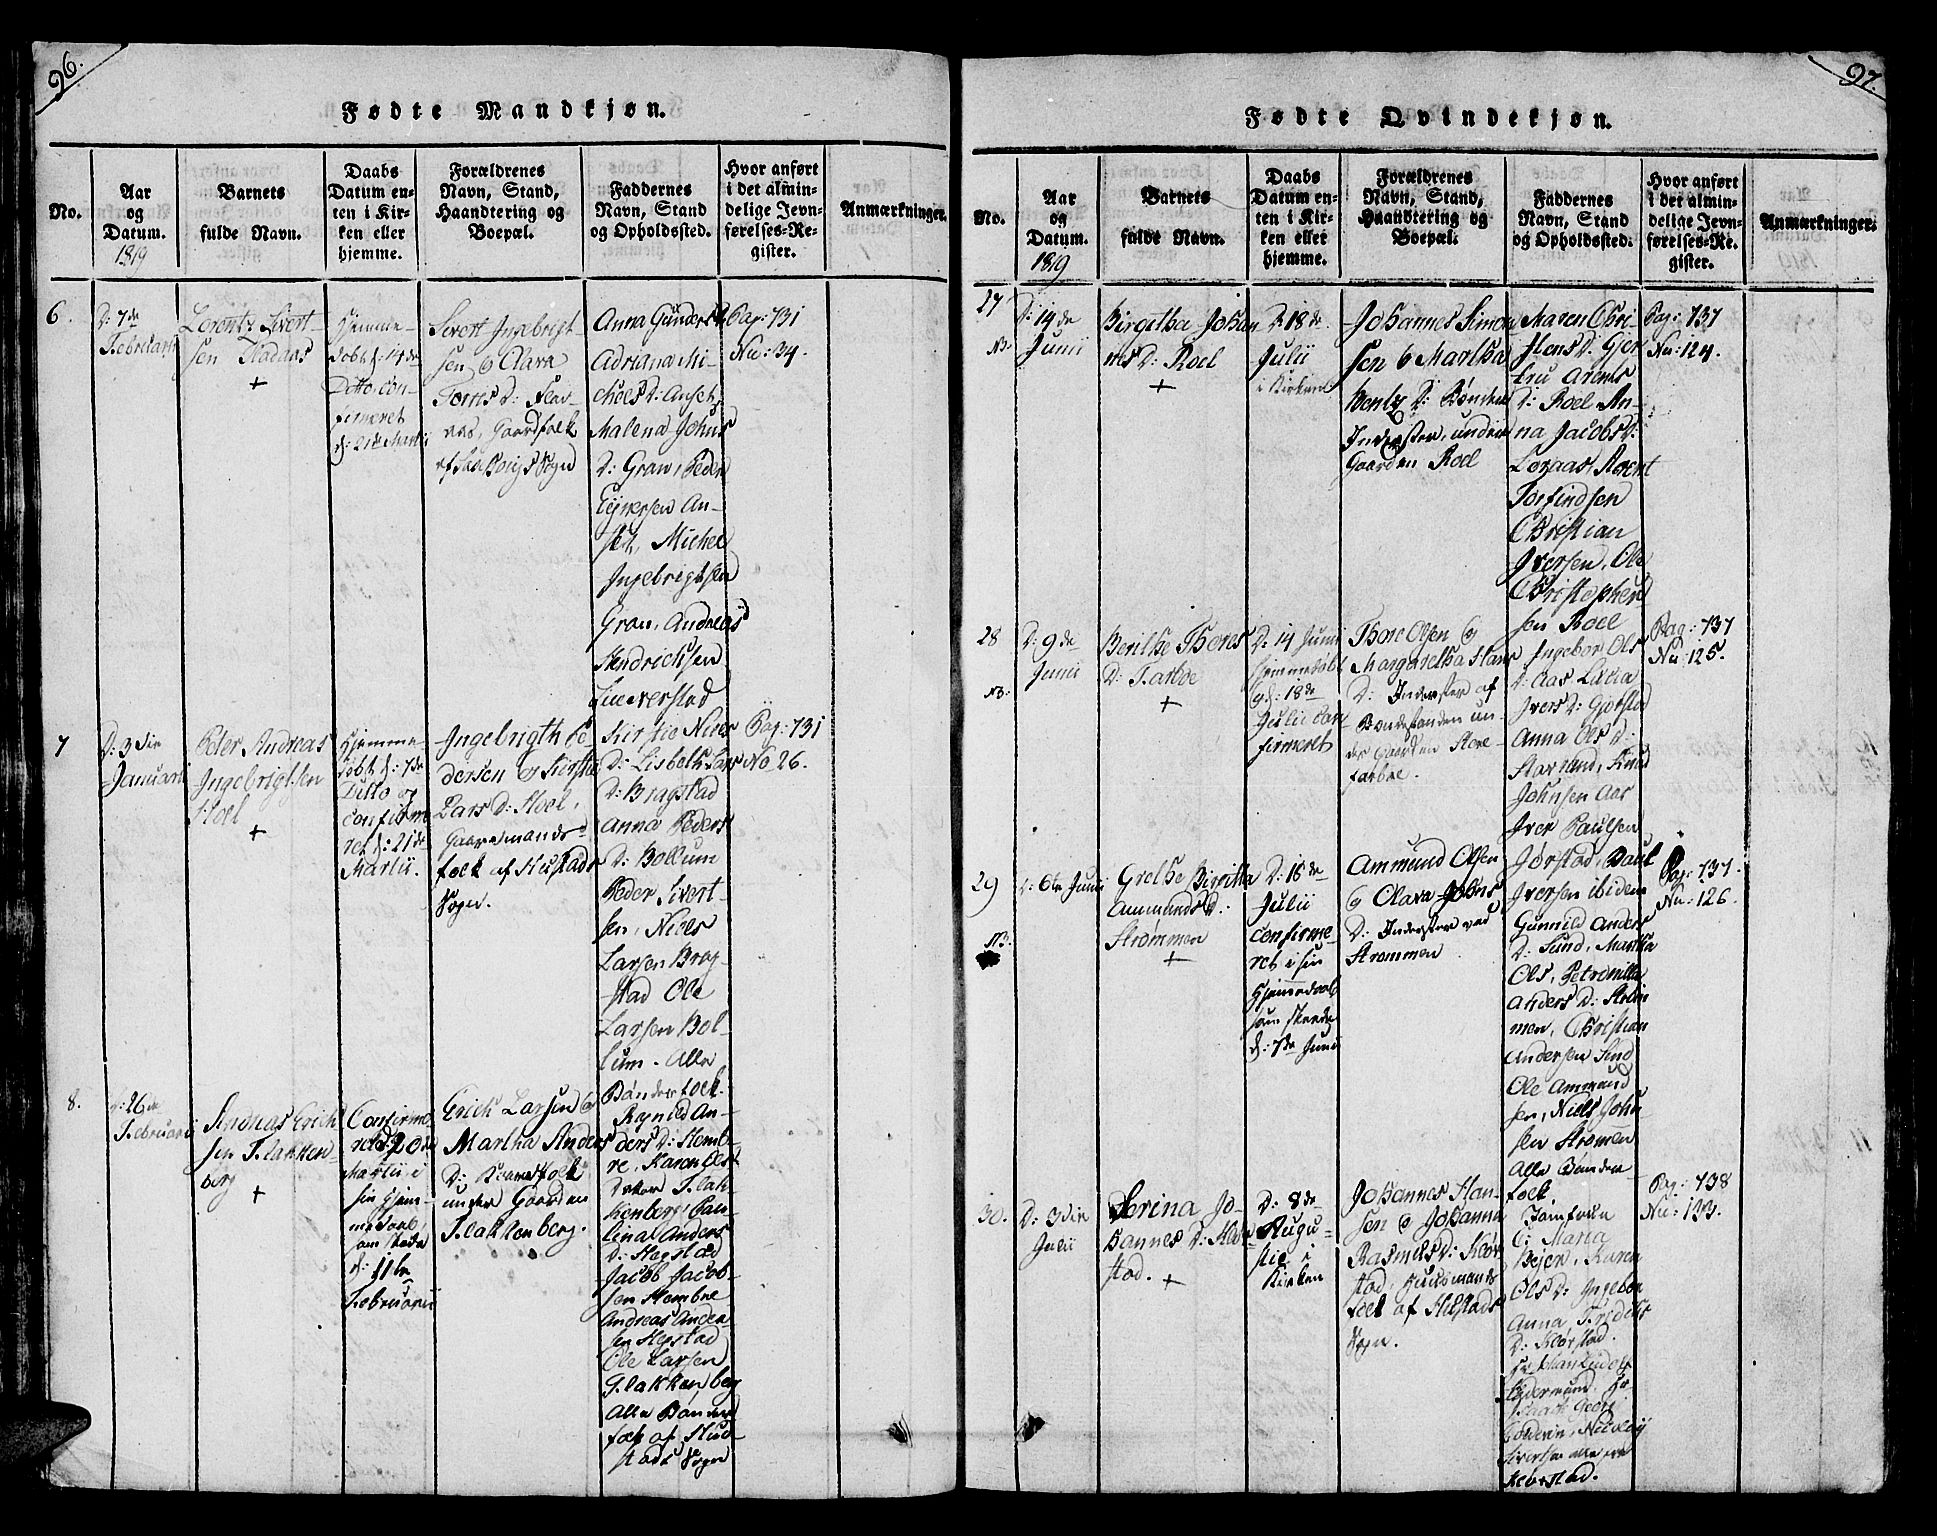 96.
Fødte Mandkjøn.
No.
Aar
og
Datum.
1819
Barnets
fulde Navn.
Daabs
Datum en-
ten i Kir-
ken eller
hjemme.
Forældrenes
Navn, Stand,
Haandtering og
Boepæl.
Faddernes
Navn, Stand
og Opholdssted.
Hvor anført
i det almin-
delige Jevn-
førelses-Re-
gister.
Anmærkninger.
6.
D: 7de
Februarii
Lorentz Sivert-
sen
+
Hjemme-
døbt d: 14de
Ditto con-
firmeret
d: 21de Martii
Sivert Ingebrigt
sen & Clara
Torris D:
Gaardfolk
Sogn
Anna Gunders D:
Adriana Mi-
choels D: Anset,
Malena Johns
D: Gran, Peder
Eyversen An-
set, Michel
Ingebrigtsen
Gran, Andreas
Hendrichsen
Pag: 731
Nu: 34.
7
D: 3die
Januarii
Peder Andreas
Ingebrigtsen
Hoel
+
Hjemme-
døbt d: 7de
Ditto og
confirme
ret d: 21de
Martii.
Ingebrigth Pe
dersen og Kirstie
Lars D: Hoel,
Gaardmands-
folk af Hustads
Sogn.
Kirstie Niels
D: Lisbeth Lars
D: Bragstad
Anna Peders
D: Bollum
Peder Sivert-
sen, Niels
Larsen Brag-
stad Ole
Larsen Bol-
lum. Alle
Bønderfolk.
Pag: 731
No 26.
8.
D: 26de
Februarii
Andreas Erich
sen Flakken-
berg
+
Confirme
ret d: 20de
Martii i
sin Hjem-
medaab,
som skede
d: 11te
Februarii
Erich Larsen &
Martha Anders
D:
under Gaarden
Flakkenberg.
Ragnild An-
ders D: Hemb-
re, Karen Ols
D: Flak-
kenberg, Pau-
lina Anders
D: Hegstad
Jacob Jacob-
sen Hembre
Andreas Ander
sen Hegstad
Ole Larsen
Flakkenberg
Alle Bønder
folk af Hus-
tads Sogn
97.
Fødte Qvindekjøn.
No.
Aar
og
Datum.
1819
Barnets
fulde Navn.
Daabs
Datum en-
ten i Kir-
ken eller
hjemme.
Forældrenes
Navn, Stand,
Haandtering og
Boepæl.
Faddernes
Navn, Stand
og Opholdssted.
Hvor anført
i det almin-
delige Jevn-
førelses-Re-
gister.
Anmærkninger.
27
D: 14de
Junii
Birgitha Johan
nes D: Roel
+
D: 18de
Julii
i Kirken
Johannes Simon
sen & Martha
Bentz D: Bønder
Inderster, under
Gaarden Roel
Maren Chri-
stens D: Gjer
tru Arens
D: Roel An-
na Jacobs D:
Torfindsen
Christian
Iversen, Ole
Christopher
sen Roel
Pag: 737
Nu: 124.
28
D: 9de
Junii
Berithe Thores
D: Farboe
+
D: 14 Junii
Hjemmedøbt
og d: 18de
Julii con-
firmeret
Thore Olsen &
Margaretha Hans
D: Inderster af
Bondestanden un-
der Gaarden Store-
farboe.
Ingebor Ols
D: Aas Lucia
Ivers D: Gjørstad
Anna Ols D:
Knud
Johnsen Aas
Iver Paulsen
Jørstad, Paul
Iversen ibidem
Pag: 737
Nu: 125.
29
D: 6te Junii
Grethe Birgitta
Ammunds D:
Strømmen
+
D: 18de
Julii
confirme-
ret i sin
Hjemmedaab
som skeede
d: 7de Junii
Ammund Olsen
& Clara Johns
D: Inderster ved
Strømmen
Gunnild Anders
D: Sund, Martha
Ols, Petronilla
Anders D: Strøm
men, Christian
Andersen Sund
Ole Ammund
sen, Niels John
sen Strømen
Alle Bønder
folk.
Pag: 737.
Nu: 126.
30.
D: 3die
Julii
Serina Jo-
hannes D:
stad.
+
D: 8de
Augu-
stii i
Kirken
Johannes Han-
sen & Johanna
Rasmus D: Kjør
stad, Huusmands
folk af Hustads
Sogn.
Jomfrue
C: Maria
Bejer, Karen
Ols D: Ingebor
Anna Fredriks
D: Kjørstad.
alle fra
Kjørstad.
Pag: 738
Nu: 133.